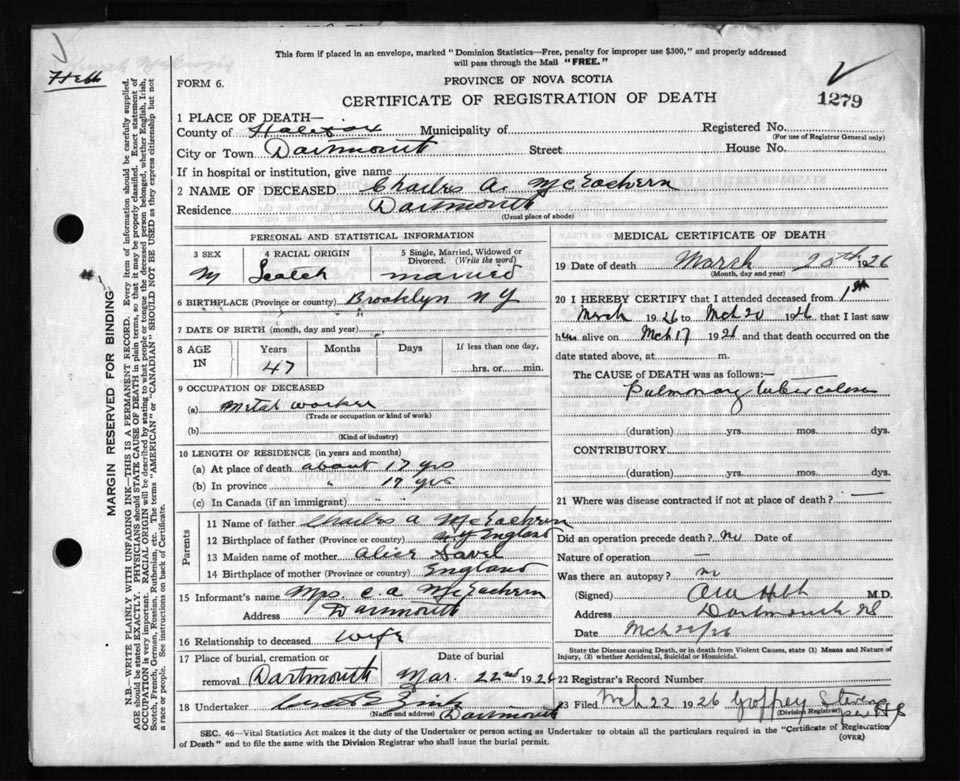 Hebb
This form if placed in an envelope, marked "Dominion Statistics—Free, penalty for improper use $300," and properly addressed
will pass through the Mail "FREE."
FORM 6.
PROVINCE OF NOVA SCOTIA
CERTIFICATE OF REGISTRATION OF DEATH
1279
1 PLACE OF DEATH—
County of Halifax Municipality of Registered No.
(For use of Registrar General only)
City or Town Dartmouth Street House No.
If in hospital or institution, give name
2 NAME OF DECEASED Charles A. McEachern
Residence Dartmouth
(Usual place of abode)
PERSONAL AND STATISTICAL INFORMATION
3 SEX
M
4 RACIAL ORIGIN
Scotch
5 Single, Married, Widowed or
Divorced. (Write the word)
married
6 BIRTHPLACE (Province or country) Brooklyn NY
7 DATE OF BIRTH (month, day and year)
8 AGE IN
Years Months Days If less than one day,
47 hrs. or min.
9 OCCUPATION OF DECEASED
(a) Metal worker
(Trade or occupation or kind of work)
(b)
(Kind of industry)
10 LENGTH OF RESIDENCE (in years and months)
(a) At place of death about 17 yrs
(b) In province " 17 yrs
(c) In Canada (if an immigrant) " "
Parents
11 Name of father Charles A McEachern
12 Birthplace of father (Province or country) England
13 Maiden name of mother Alice
14 Birthplace of mother (Province or country) England
15 Informant's name Mrs C. A McEachern
Address Dartmouth
16 Relationship to deceased Wife
17 Place of burial, cremation or
removal Dartmouth
Date of burial
Mar. 22nd 1926
18 Undertaker
(Name and address) Dartmouth
MEDICAL CERTIFICATE OF DEATH
19 Date of death March 20th 1926
(Month, day and year)
20 I HEREBY CERTIFY that I attended deceased from 1st
March 1926 to Mch 20 1926 that I last saw
him alive on Mch 17 1926 and that death occurred on
date stated above, at m.
The CAUSE of DEATH was as follows:—
Pulmonary tuberculosis
(duration) yrs. mos. dys.
CONTRIBUTORY.
(duration) yrs. mos. dys.
21 Where was disease contracted if not at place of death? —
Did an operation precede death? no Date of
Nature of operation —
Was there an autopsy? no
(Signed) Hebb M.D.
Address Dartmouth NS
Date Mch 22/26
State the Disease causing Death, or in death from Violent Causes, state (1) Means and Nature of
Injury, (2) whether Accidental, Suicidal or Homicidal.
22 Registrar's Record Number
23 Filed Mch 22 1926 Geoffrey Stevens
(Division Registrar)
SEC. 46—Vital Statistics Act makes it the duty of the Undertaker or person acting as Undertaker to obtain all the particulars required in the "Certificate of Registration
of Death" and to file the same with the Division Registrar who shall issue the burial permit.
(OVER)
MARGIN RESERVED FOR BINDING
N.B.—WRITE PLAINLY WITH UNFADING INK—THIS IS A PERMANENT RECORD. Every item of information should be carefully supplied.
AGE should be stated EXACTLY. PHYSICIANS should STATE CAUSE OF DEATH in plain terms, so that it may be properly classified. Exact statement of
OCCUPATION is very important. RACIAL ORIGIN will be described by stating to what people or tongue the deceased person belonged, whether English, Irish,
Scotch, French, German, Russian, Ruthenian, etc. The terms "AMERICAN" or "CANADIAN" SHOULD NOT BE USED as they express citizenship but not
a race or people. See instructions on back of Certificate.